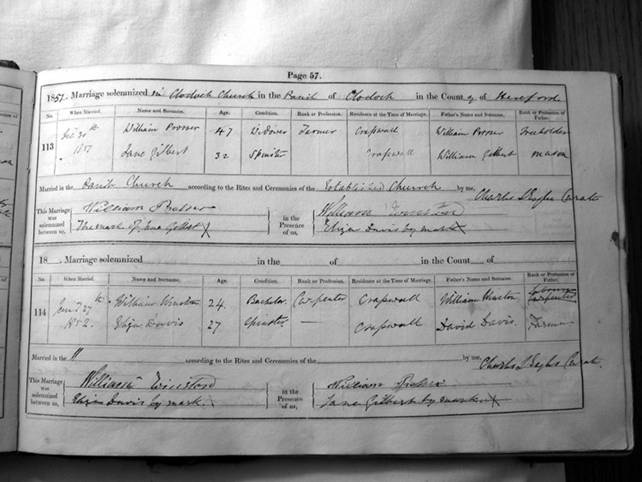 Page 57.
1851. Marriage solemnized in Clodock Church in the Parish of Clodock in the County of Hereford
No. When Married. Name and Surname. Age. Condition. Rank or Profession. Residence at the Time of Marriage. Father's Name and Surname. Rank or Profession of Father.
113 30th William Prosser 47 Widower Farmer Craswall William Prosser Freeholder
1851 Jane Gilbert 32 Spinster Craswall William Gilbert Mason
Married in the Parish Church according to the Rites and Ceremonies of the Established Church by me, Charles Curate
This Marriage was solemnized between us, William Prosser in the Presence of us, William Winston
The mark of Jane Gilbert X Eliza Davis by mark X
18 . Marriage solemnized in the of in the County of
No. When Married. Name and Surname. Age. Condition. Rank or Profession. Residence at the Time of Marriage. Father's Name and Surname. Rank or Profession of Father.
114 27th William Winston 24 Bachelor Carpenter Craswall William Winston Carpenter
1852. Eliza Davis 27 Spinster — Craswall David Davis Farmer
Married in the " according to the Rites and Ceremonies of the by me, Charles Curate
This Marriage was solemnized between us, William Winston in the Presence of us, William Prosser
Eliza Davis by mark X Jane Gilbert by mark X